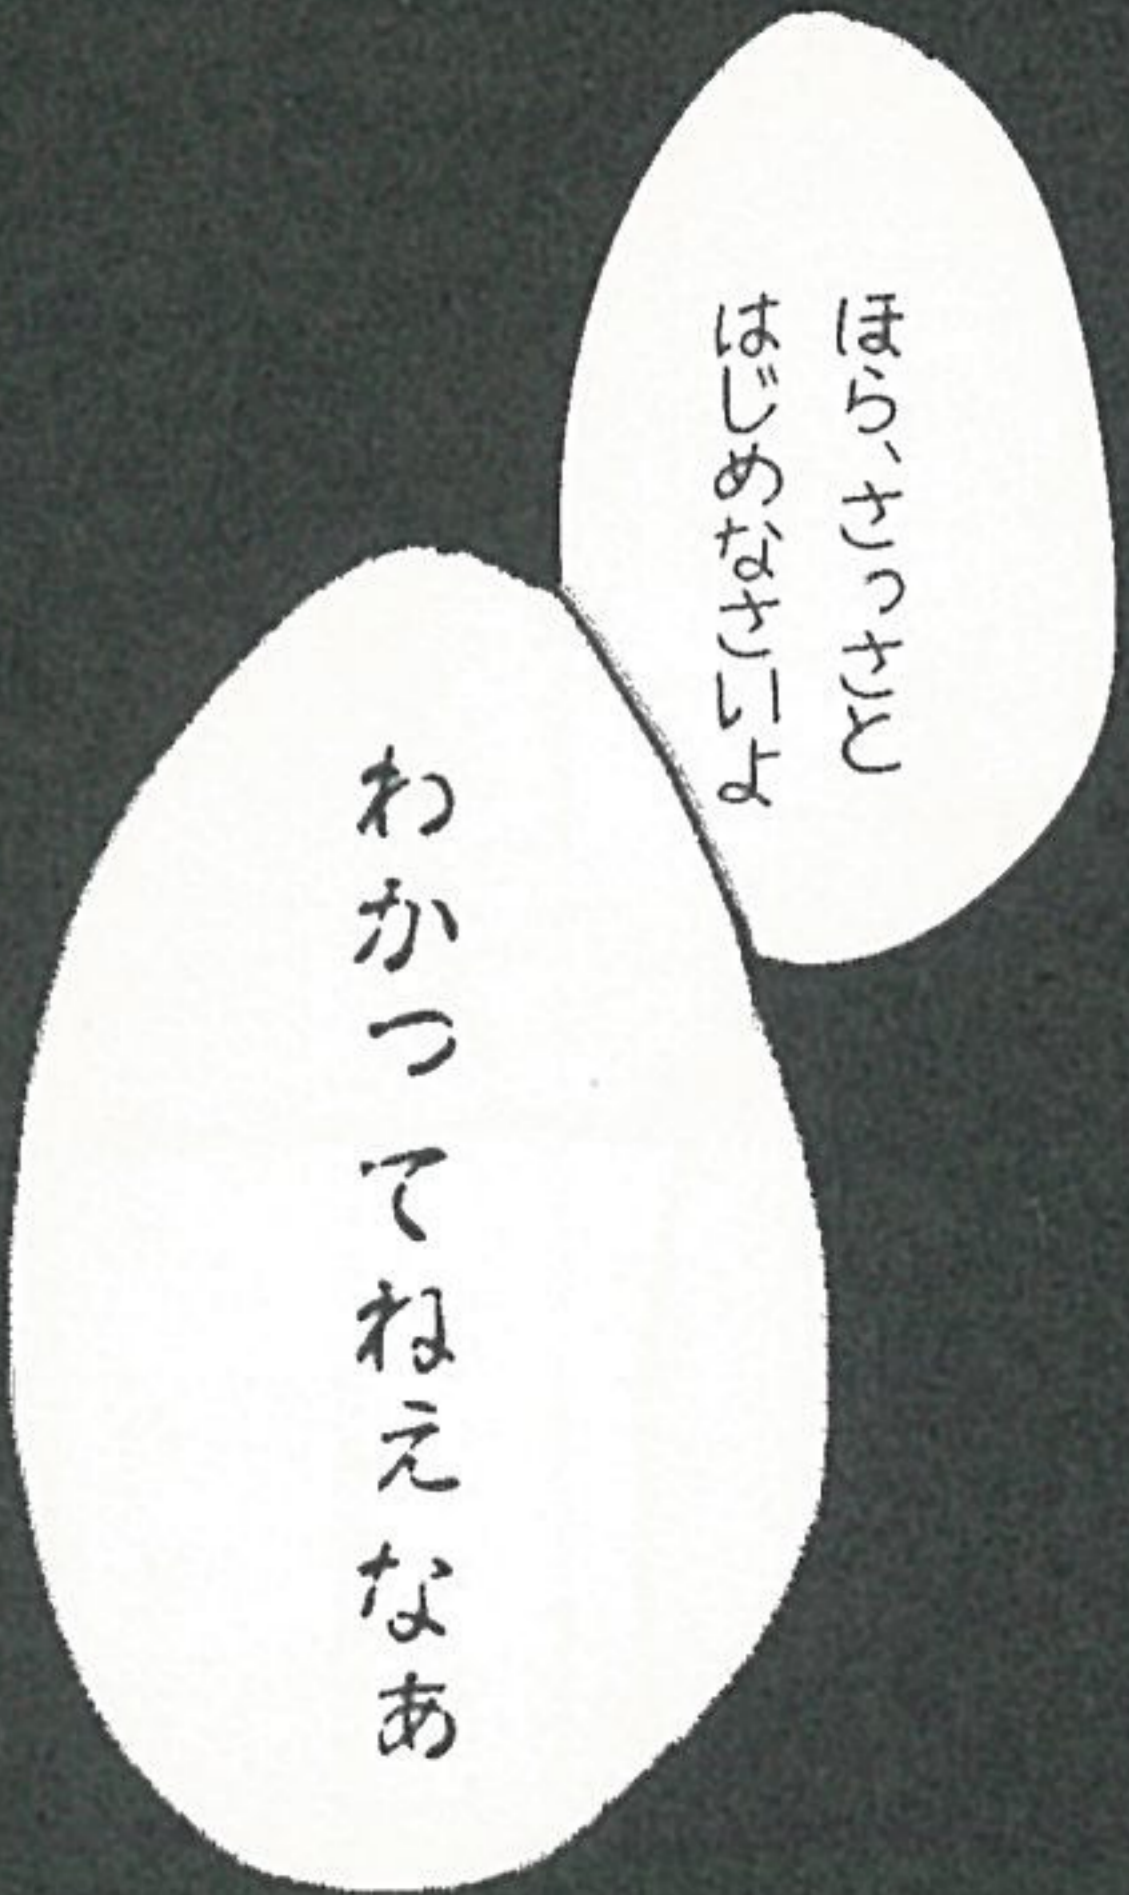 ほら、さっさと
はじめなさいよ
わかってねえなあ